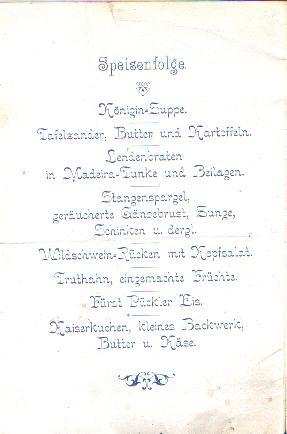 Speisenfolge.
Königin-Suppe.
Tafelzander, Butter und Kartoffeln.
Lendenbraten
in Madeira-Tunke und Beilagen.
Stangenspargel,
geräucherte Gänsebrust, Zunge,
Schinken u. dergl.
Wildschwein-Rücken mit Kopfsalat.
Truthahn, eingemachte Früchte.
Fürst Pückler Eis.
Kaiserkuchen, kleines Backwerk,
Butter u. Käse.